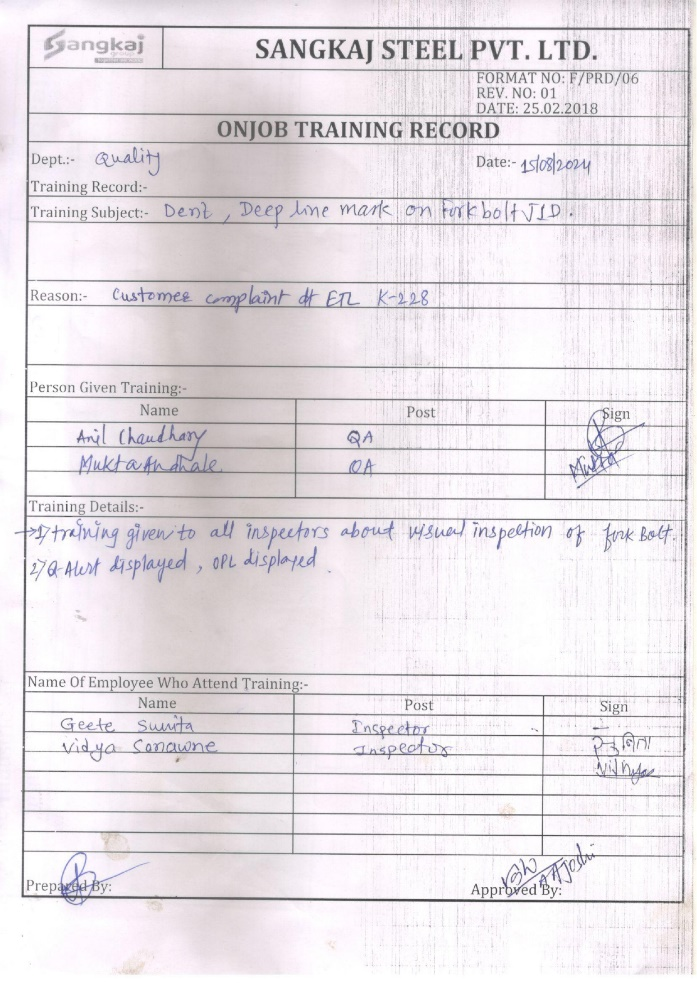 Sangkaj
SANGKAJ STEEL PVT. LTD.
FORMAT NO: F/PRD/06
REV. NO: 01
DATE: 25.02.2018
ONJOB TRAINING RECORD
Dept.:- Quality Date:- 15/08/2024
Training Record:-
Training Subject:- Dent, Deep line mark on fork bolt J1D.
Reason:- Customer complaint at ETL K-228
Person Given Training:-
Name Post Sign
Anil Chaudhary QA
Mukta Andhale QA Mukta
Training Details:-
→1) training given to all inspectors about visual inspection of fork Bolt.
2) Q-Alert displayed, OPL displayed
Name Of Employee Who Attend Training:-
Name Post Sign
Geete Sunita Inspector
Vidya Sonawne Inspector
Prepared By: Approved By: AAJoshi